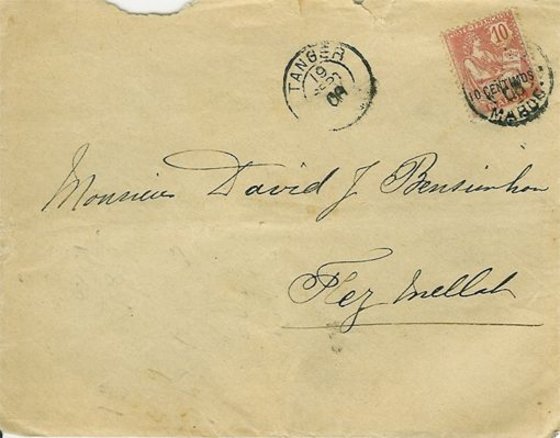 TANGER
19
10
10 CENTIMOS
MAROC
Monsieur David J Bensimhon
Fez Mellah